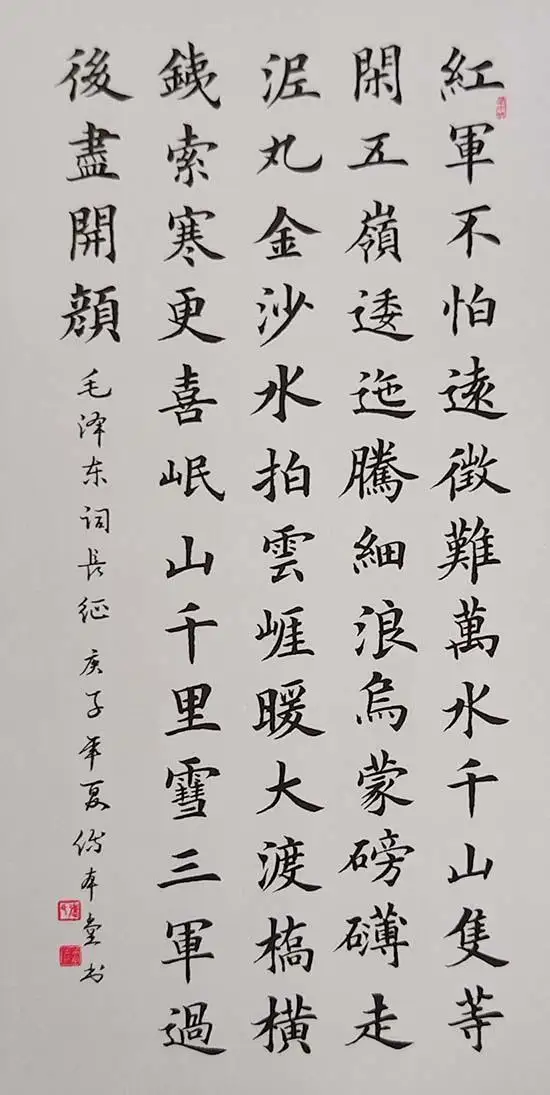 紅軍不怕遠徵難萬水千山隻等
閑五嶺逶迤騰細浪烏蒙磅礴走
泥丸金沙水拍雲崕暖大渡槗橫
銕索寒更喜岷山千里雪三軍過
後盡開顔
毛泽东词長征 庚子年夏 本堂书